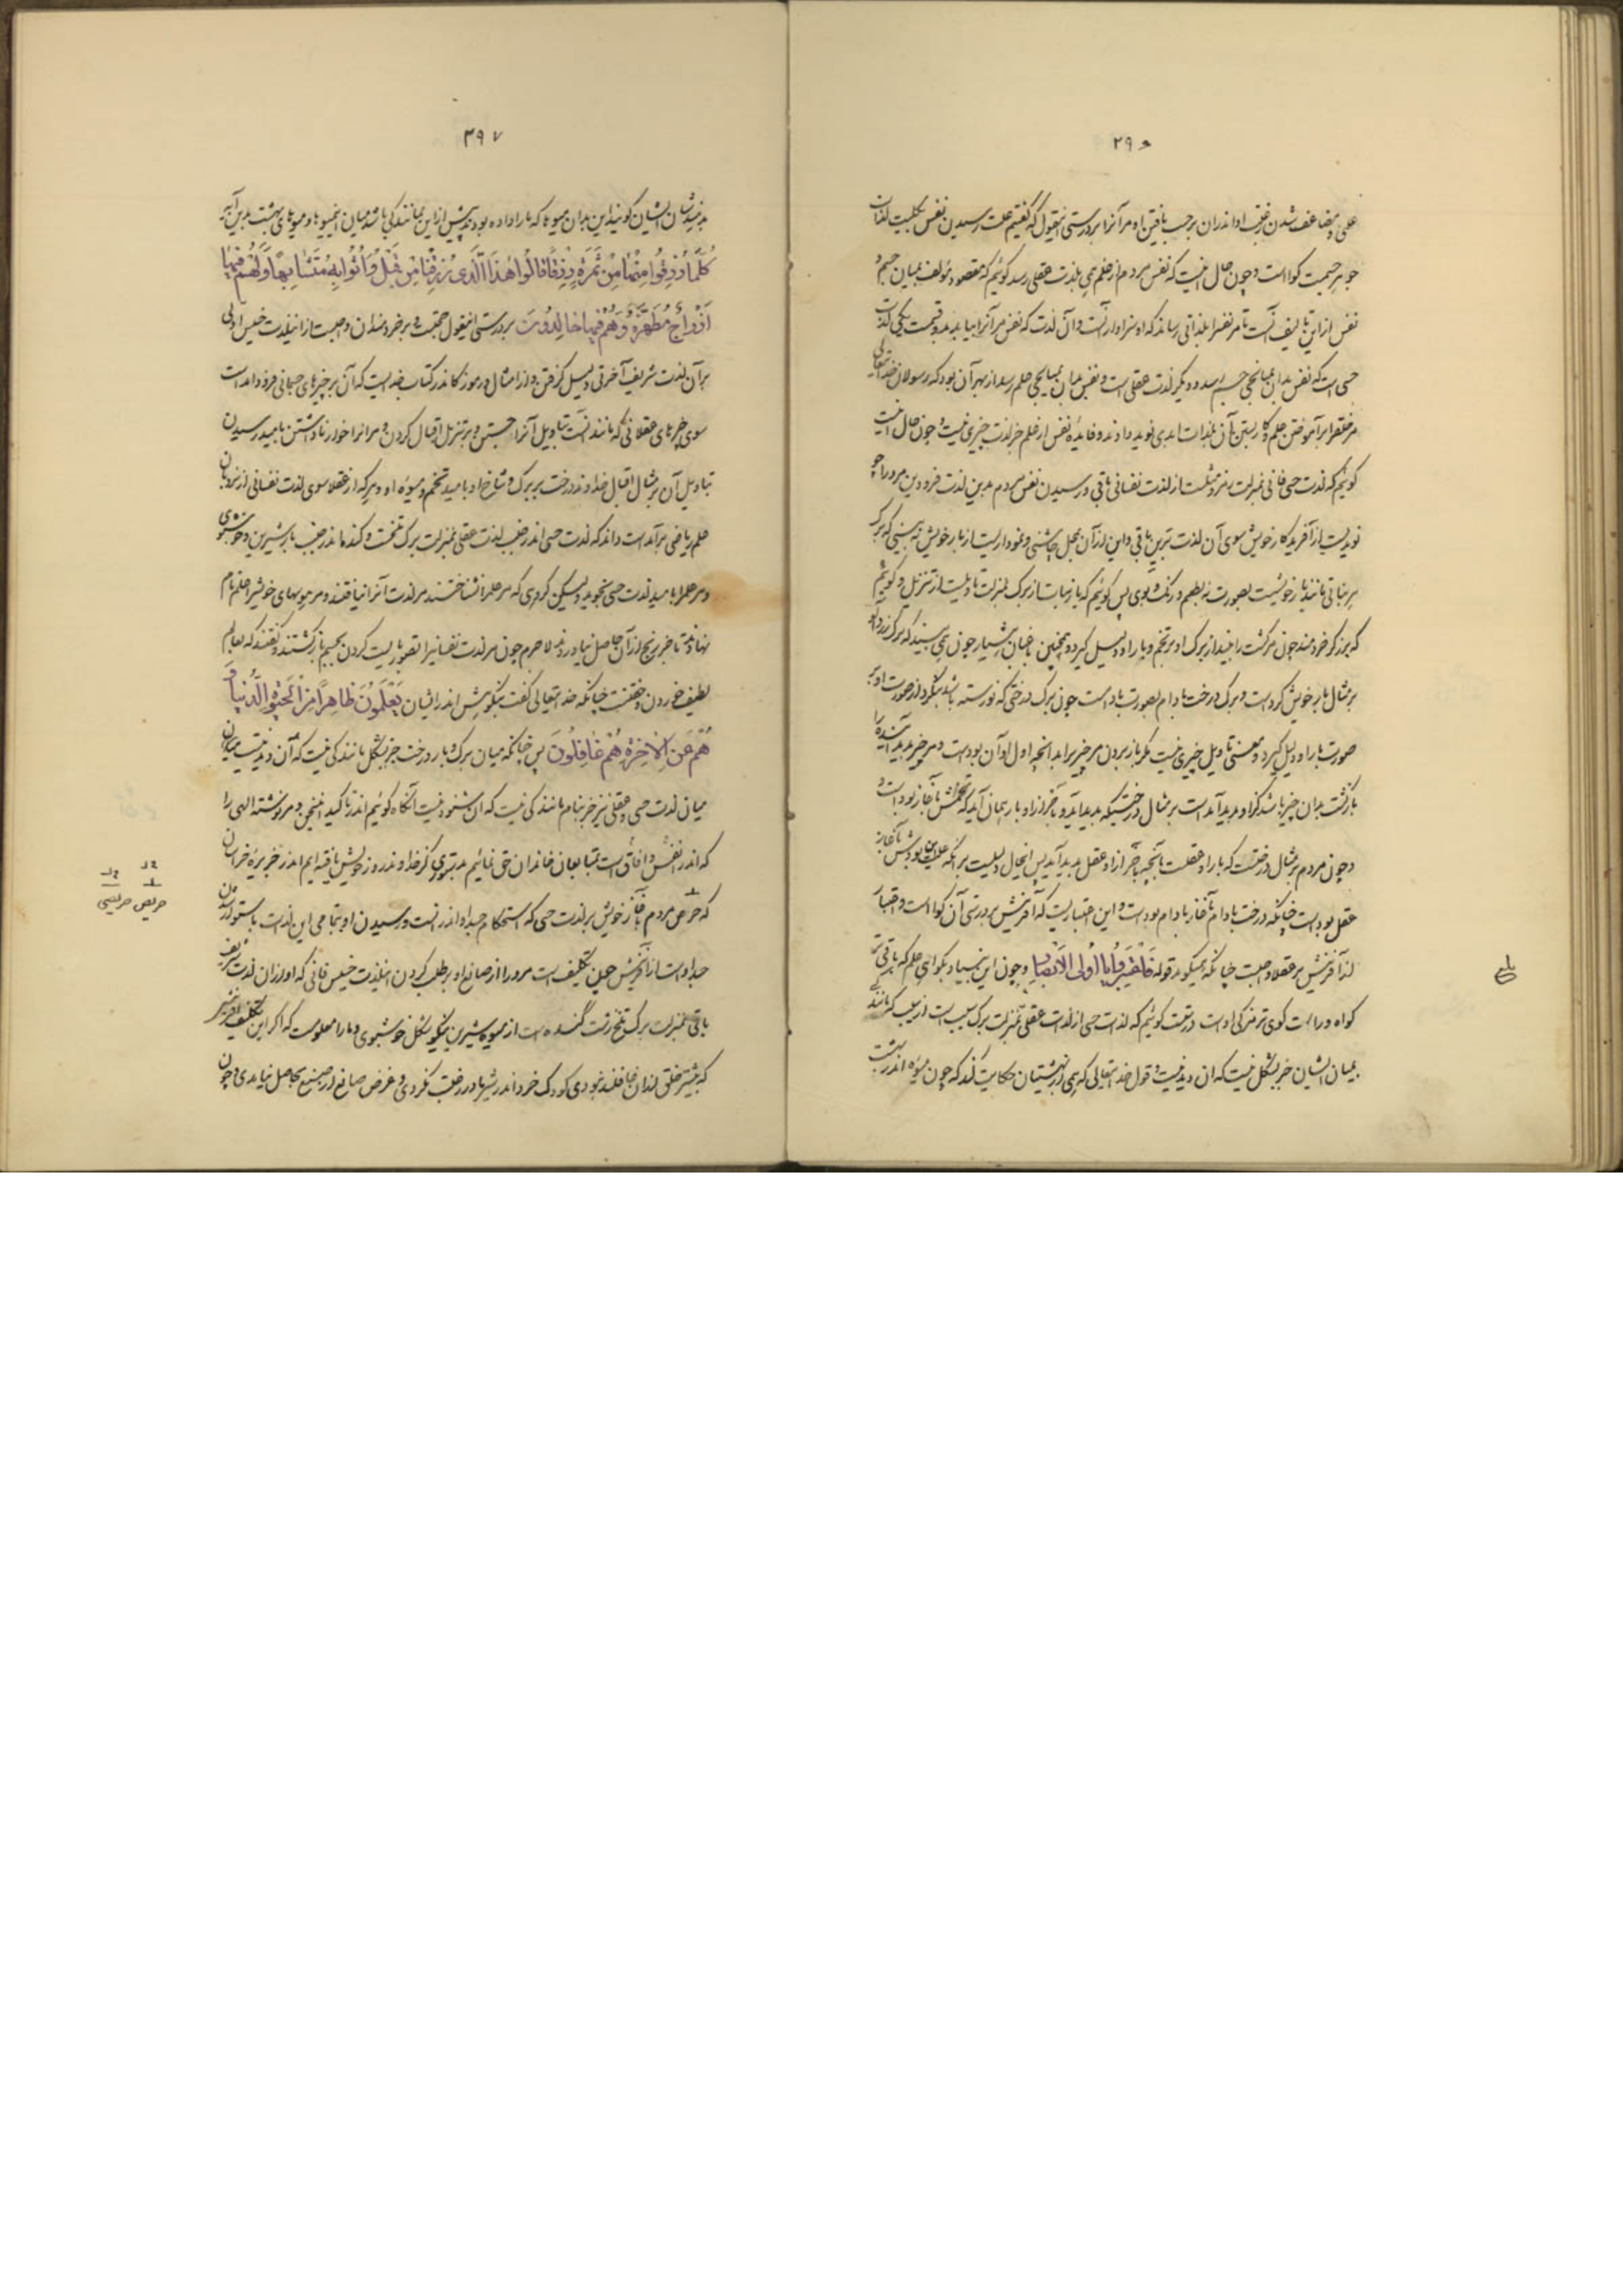 ۲۹۵
علمی و مضاعف شدن رغبت او اندر آن بر حسب یافتن او مر آنرا بر درستی اینقول که گفتیم علت رسیدن نفس بکلیت لذات
جوهر جسمیت گواه است و چون حال اینست که نفس مردم از علم همی بلذت عقلی رسد گوئیم که مقصود مؤلف میان جسم و
نفس ازین تألیف آنست تا مر نفس را بلذاتی رساند که او سزاوار آنست و آن لذت که نفس مر آنرا بیابد بدو قسمت یکی لذت
حسی است که نفس بدان بمیانجی جسم رسد و دیگر لذت عقلی است و نفس بدان بمیانجی علم رسد از بهر آن بود که رسولان خدایتعالی
مر خلق را بر آموختن علم و کار بستن آن بلذات ابدی نوید دادند و فایده نفس از علم جز لذت چیزی نیست و چون حال اینست
گوئیم که لذت حسی فانی بمنزلت رمز و مثلست از لذت نفسانی باقی و رسیدن نفس مردم بدین لذت فرودین مر او را چو
نویدیست از آفریدگار خویش سوی آن لذت برین باقی و این از آن بمحل چاشنی و نموداریست از بار خویش نه بینی که برگ
هر نباتی مانند بار خویشست بصورت نه بطعم و رنگ و بوی پس گوئیم که بار نبات از برگ بمنزلت تاویلست از تنزیل و گوئیم
که برزگر خردمند چون مر کشت را بیند از برگ او بر تخم و بار او دلیل گیرد و همچنین باغبان بسیار چون همی بیند که برگ زردآلو
بر مثال بار خویش گرد است و برگ درخت بادام بصورت بادام است چون برگ درختی که نورسته باشد بنگرد از صورت او بر
صورت بار او دلیل گیرد و معنی تاویل چیزی نیست مگر باز بردن مر چیز را بدانچه اول او آن بودست و هر چیز پدید آینده را
بازگشت بدان چیز باشد کز او پدید آمده است بر مثال درختیکه پدید آید و بآخر از او بار همان آید که تخمش بآغاز بوده است و
و چون مردم بر مثال درختست که بار او عقلست بآنچه بآخر از او عقل پدید آید پس اینحال دلیلست بر آنکه علت بودش بآغاز
عقل بوده است چنانکه درخت بادام بآغاز بادام بوده است و این اعتباریست که آفرینش بر درستی آن گواه است و اعتبار
از آفرینش بر عقلا واجبست چنانکه همیگوید قوله فَاعْتَبِرُوا یٰا اُولِی الْاَبْصٰارِ و چون این بنیاد بگواهی علم که باقی تر
گواه و راست گوی تر مزکی اوست درستست گوئیم که لذت حسی از لذت عقلی بمنزلت برگ سیبست از سیب که مانندگی
میان ایشان جز بشکل نیست که آن دیدنیست و قول خدایتعالی که همی از بهشتیان حکایت کند که چون میوه اندر بهشت
۲۹۷
بدیشان ایشان گویند این بدان میوها که ما را داده بودند پیش ازین بمانندگی باشد میان این میوها و میوهای بهشت بدین آیه
کُلَّمٰا رُزِقُوا مِنْهٰا مِنْ ثَمَرَةٍ رِزْقًا قٰالُوا هٰذَا الَّذِی رُزِقْنٰا مِنْ قَبْلُ وَ اُتُوا بِهِ مُتَشٰابِهًا وَ لَهُمْ فِیهٰا
اَزْوٰاجٌ مُطَهَّرَةٌ وَ هُمْ فِیهٰا خٰالِدُونَ بر درستی اینقول حجتست و بر خردمندان واجبست از اینلذت خسیس اولی
بر آن لذت شریف آخرتی دلیل گرفتن و از امثال و رموز کاندر کتاب خدایست که آن بر چیزهای جسمانی فرود آمده است
سوی چیزهای عقلانی که مانند آنست بتاویل آنرا جستن و بر تنزیل اقبال کردن و مر آنرا خوار ناداشتن بامید رسیدن
بتاویل آن بر مثال اقبال خداوند درخت بر برگ و شاخ او بامید تخم و میوه او و هر که از عقلا سوی لذت نفسانی از نردبان
علم ریاضی بر آمده است داند که لذت حسی اندر جنب لذت عقلی بمنزلت برگ تلخست و گنده اندر جنب بار شیرین و خوشبوی
و مر علم را بامید لذت حسی نجوید و لیکن گروهی که مر علم را نشناختند مر لذت آنرا نیافتند و مر هوسهای خویش را علم نام
نهادند تا جز رنج از آن حاصل نیاوردند لاجرم چون مر لذت نفسانیرا تصور نیست کردن بجسم باز گشتند و گفتند که بعالم
لطیف خوردن و خفتنست چنانکه خدایتعالی گفت بنکوهش اندر ایشان یَعْلَمُونَ ظٰاهِرًا مِنَ الْحَیٰوةِ الدُّنْیٰا وَ
هُمْ عَنِ الْاٰخِرَةِ هُمْ غٰافِلُونَ پس چنانکه میان برگ و بار درخت جز بشکل مانندگی نیست که آن دیدنیست میان
میان لذت حسی و عقلی نیز جز بنام مانندگی نیست که آن شنودنیست آنگاه گوئیم اندر تاکید اینمعنی و مر نوشته الهی را
که اندر انفس و آفاق است بمتابعان خاندان حق نمائیم بدستوری کز خداوند روز خویش یافته ایم اندر جزیره خراسان
که حرص مردم بآغاز خویش بر لذت حسی که استحکام جسد او اندر آنست و رسیدن او بتمامی این لذت باستواری
جسد اوست از آفرینش چون تکلیف است مر او را از صانع او بر طلب کردن اینلذت خسیس فانی که او از آن لذت شریف
باقی بمنزلت برگ تلخ زشت گنده است از میوه شیرین نیکو شکل خوشبوی و ما را معلومست که اگر این تکلیف از آفرینش
که بیشتر خلق از آن غافلند نبودی کودک خرد اندر شیر مادر رغبت نکردی و غرض صانع از صنع بحاصل نیامدی و چون
حریص حریصی